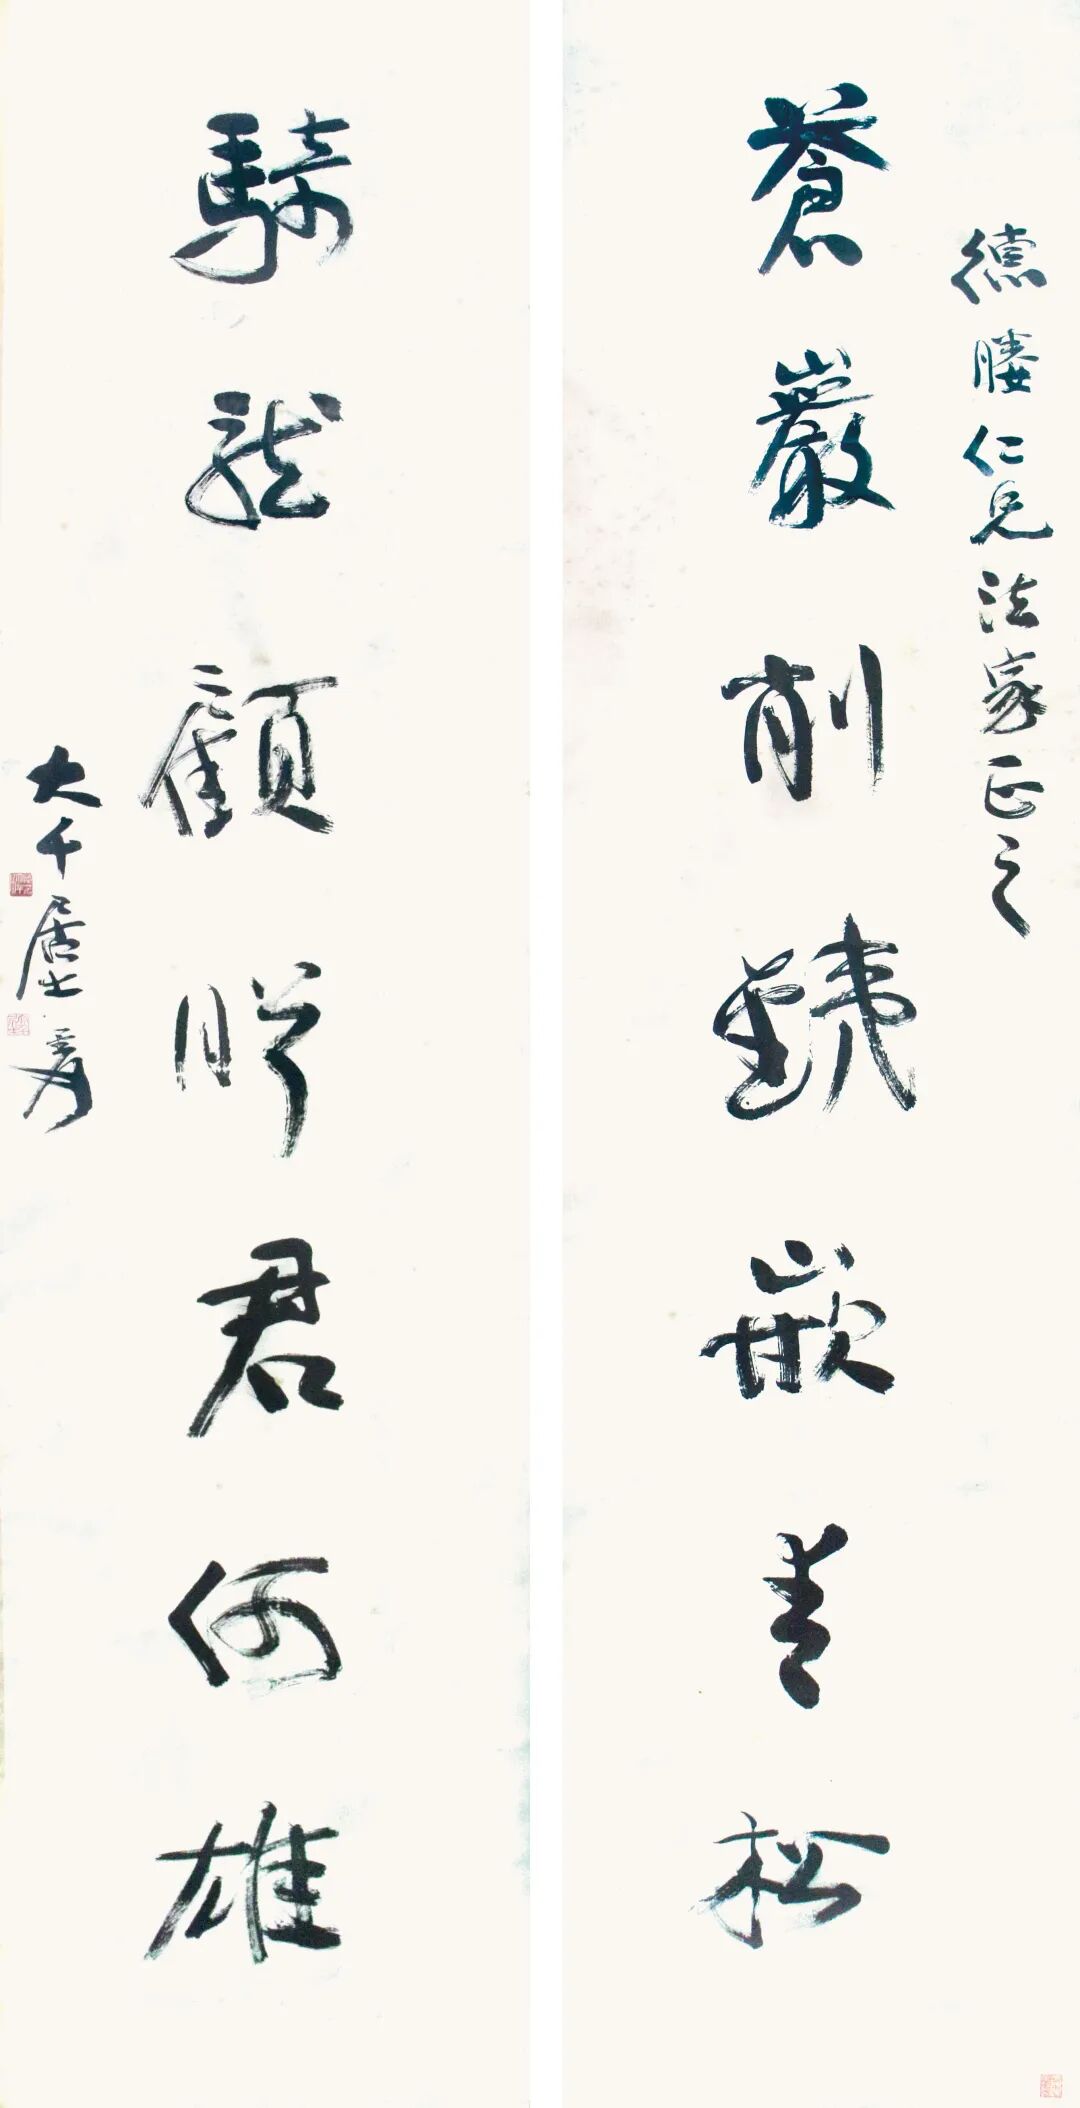 德仁兄法家正之
蒼巖削銕嵌青松
騎龍顧盼君何雄
大千居士爰